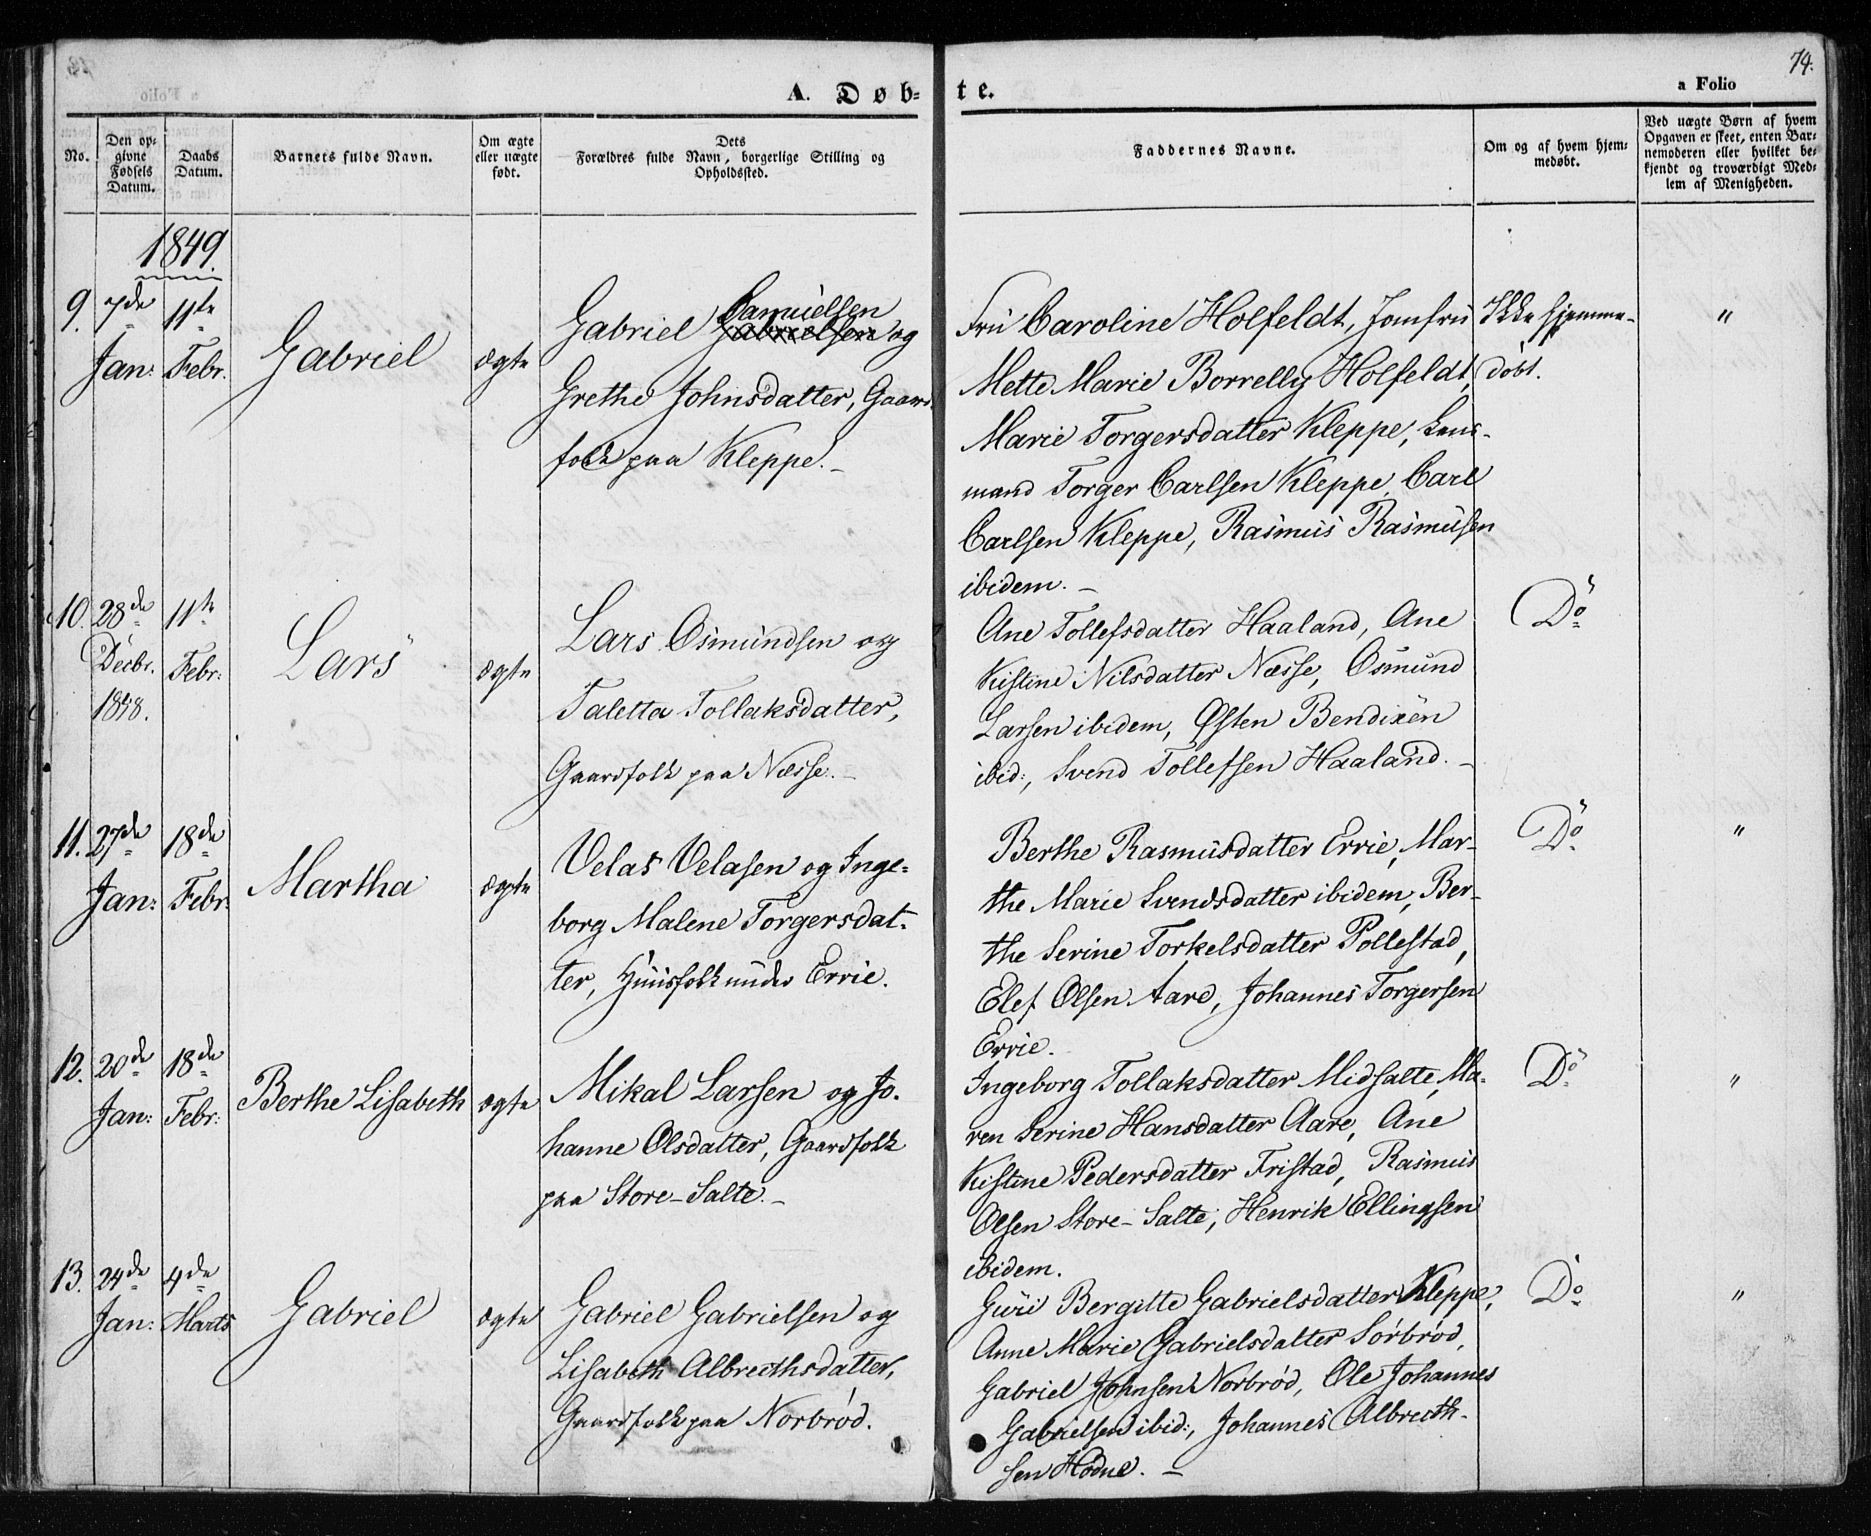 74.
A. Døb-
te.
a Folio
No.
Den op-
givne
Fødsels
Datum.
Daabs
Datum.
Barnets fulde Navn.
Om ægte
eller uægte
født.
Dets
Forældres fulde Navn, borgerlige Stilling og
Opholdssted.
Faddernes Navne.
Om og af hvem hjem-
medøbt.
Ved uægte Børn af hvem
Opgaven er skeet, enten Bar-
nemoderen eller hvilket be-
kjendt og troværdigt Med-
lem af Menigheden.
1849.
9.
7de
Jan:
11te
Febr.
Gabriel
ægte
Samuelsen
Gabriel Gabrielsen og
Grethe Johnsdatter, Gaard-
folk paa Kleppe. –
Fru Caroline Holfeldt, Jomfru
Mette Marie Borrelly Holfeldt,
Marie Torgersdatter Kleppe, Lens-
mand Torger Carlsen Kleppe, Carl
Carlsen Kleppe, Rasmus Rasmusen
ibidem. –
Ikke hjemme-
døbt.
"
10.
28de
Decbr.
1848.
11te
Febr:
Lars
ægte
Lars Osmundsen og
Taletta Tollaksdatter,
Gaardfolk paa Næsse. –
Ane Tollefsdatter Haaland, Ane
Kistine Nilsdatter Næsse, Osmund
Larsen ibidem, Østen Bendixen
ibid:, Svend Tollefsen Haaland. –
Do
11.
27de
Jan:
18de
Febr:
Martha
ægte
Velas Velasen og Inge-
borg Malene Torgersdat-
ter, Huusfolk under Errie.
Berthe Rasmusdatter Errie, Mar-
the Marie Svendsdatter ibidem, Ber-
the Serine Torkelsdatter Pollestad,
Elef Olsen Aare, Johannes Torgersen
Errie.
Do
"
12.
20de
Jan:
18de
Febr:
Berthe Lisabeth
ægte
Mikal Larsen og Jo-
hanne Olsdatter, Gaardfolk
paa Store-Salte. –
Ingeborg Tollaksdatter Midsalte, Ma-
ren Serine Hansdatter Aare, Ane
Kistine Pedersdatter Fristad, Rasmus
Olsen Store-Salte, Henrik Ellingsen
ibidem.
Do
"
13.
24de
Jan:
4de
Marts
Gabriel
ægte
Gabriel Gabrielsen og
Lisabeth Albrecthsdatter,
Gaardfolk paa Norbrød.
Guri Bergitte Gabrielsdatter Kleppe,
Anne Marie Gabrielsdatter Sørbrød,
Gabriel Johnsen Norbrød, Ole Johannes
Gabrielsen ibid:, Johannes Albrecth-
sen Hodne. –
Do
"